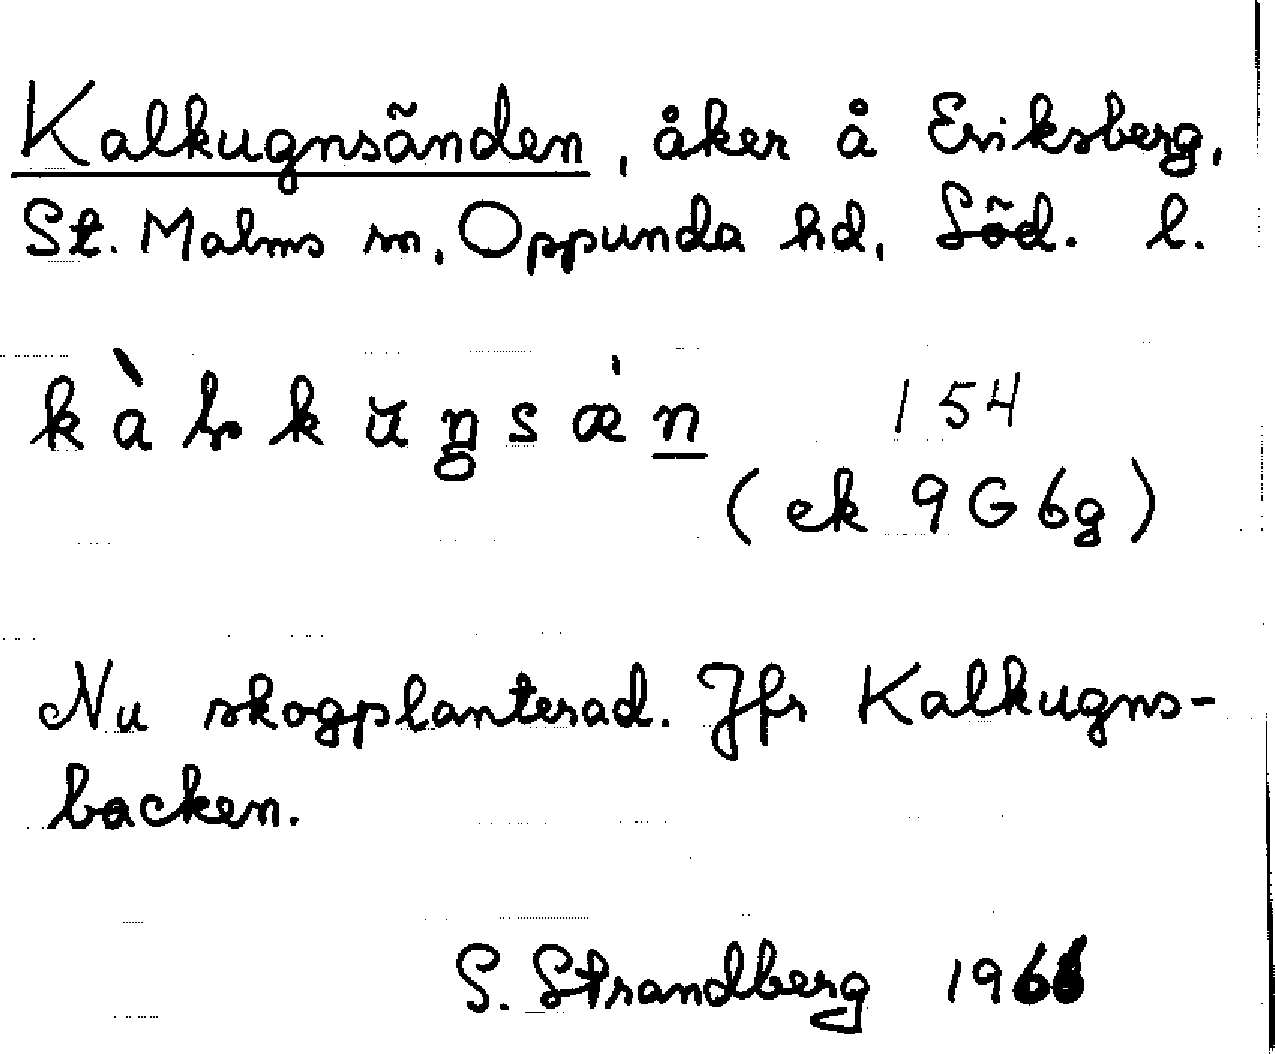 Kalkugnsänden, åker å Eriksberg,
St. Malms sn, Oppunda hd, Söd. l.
154
(ek 9G6g)
Nu skogplanterad. Jfr Kalkugns-
backen.
S. Strandberg 1966